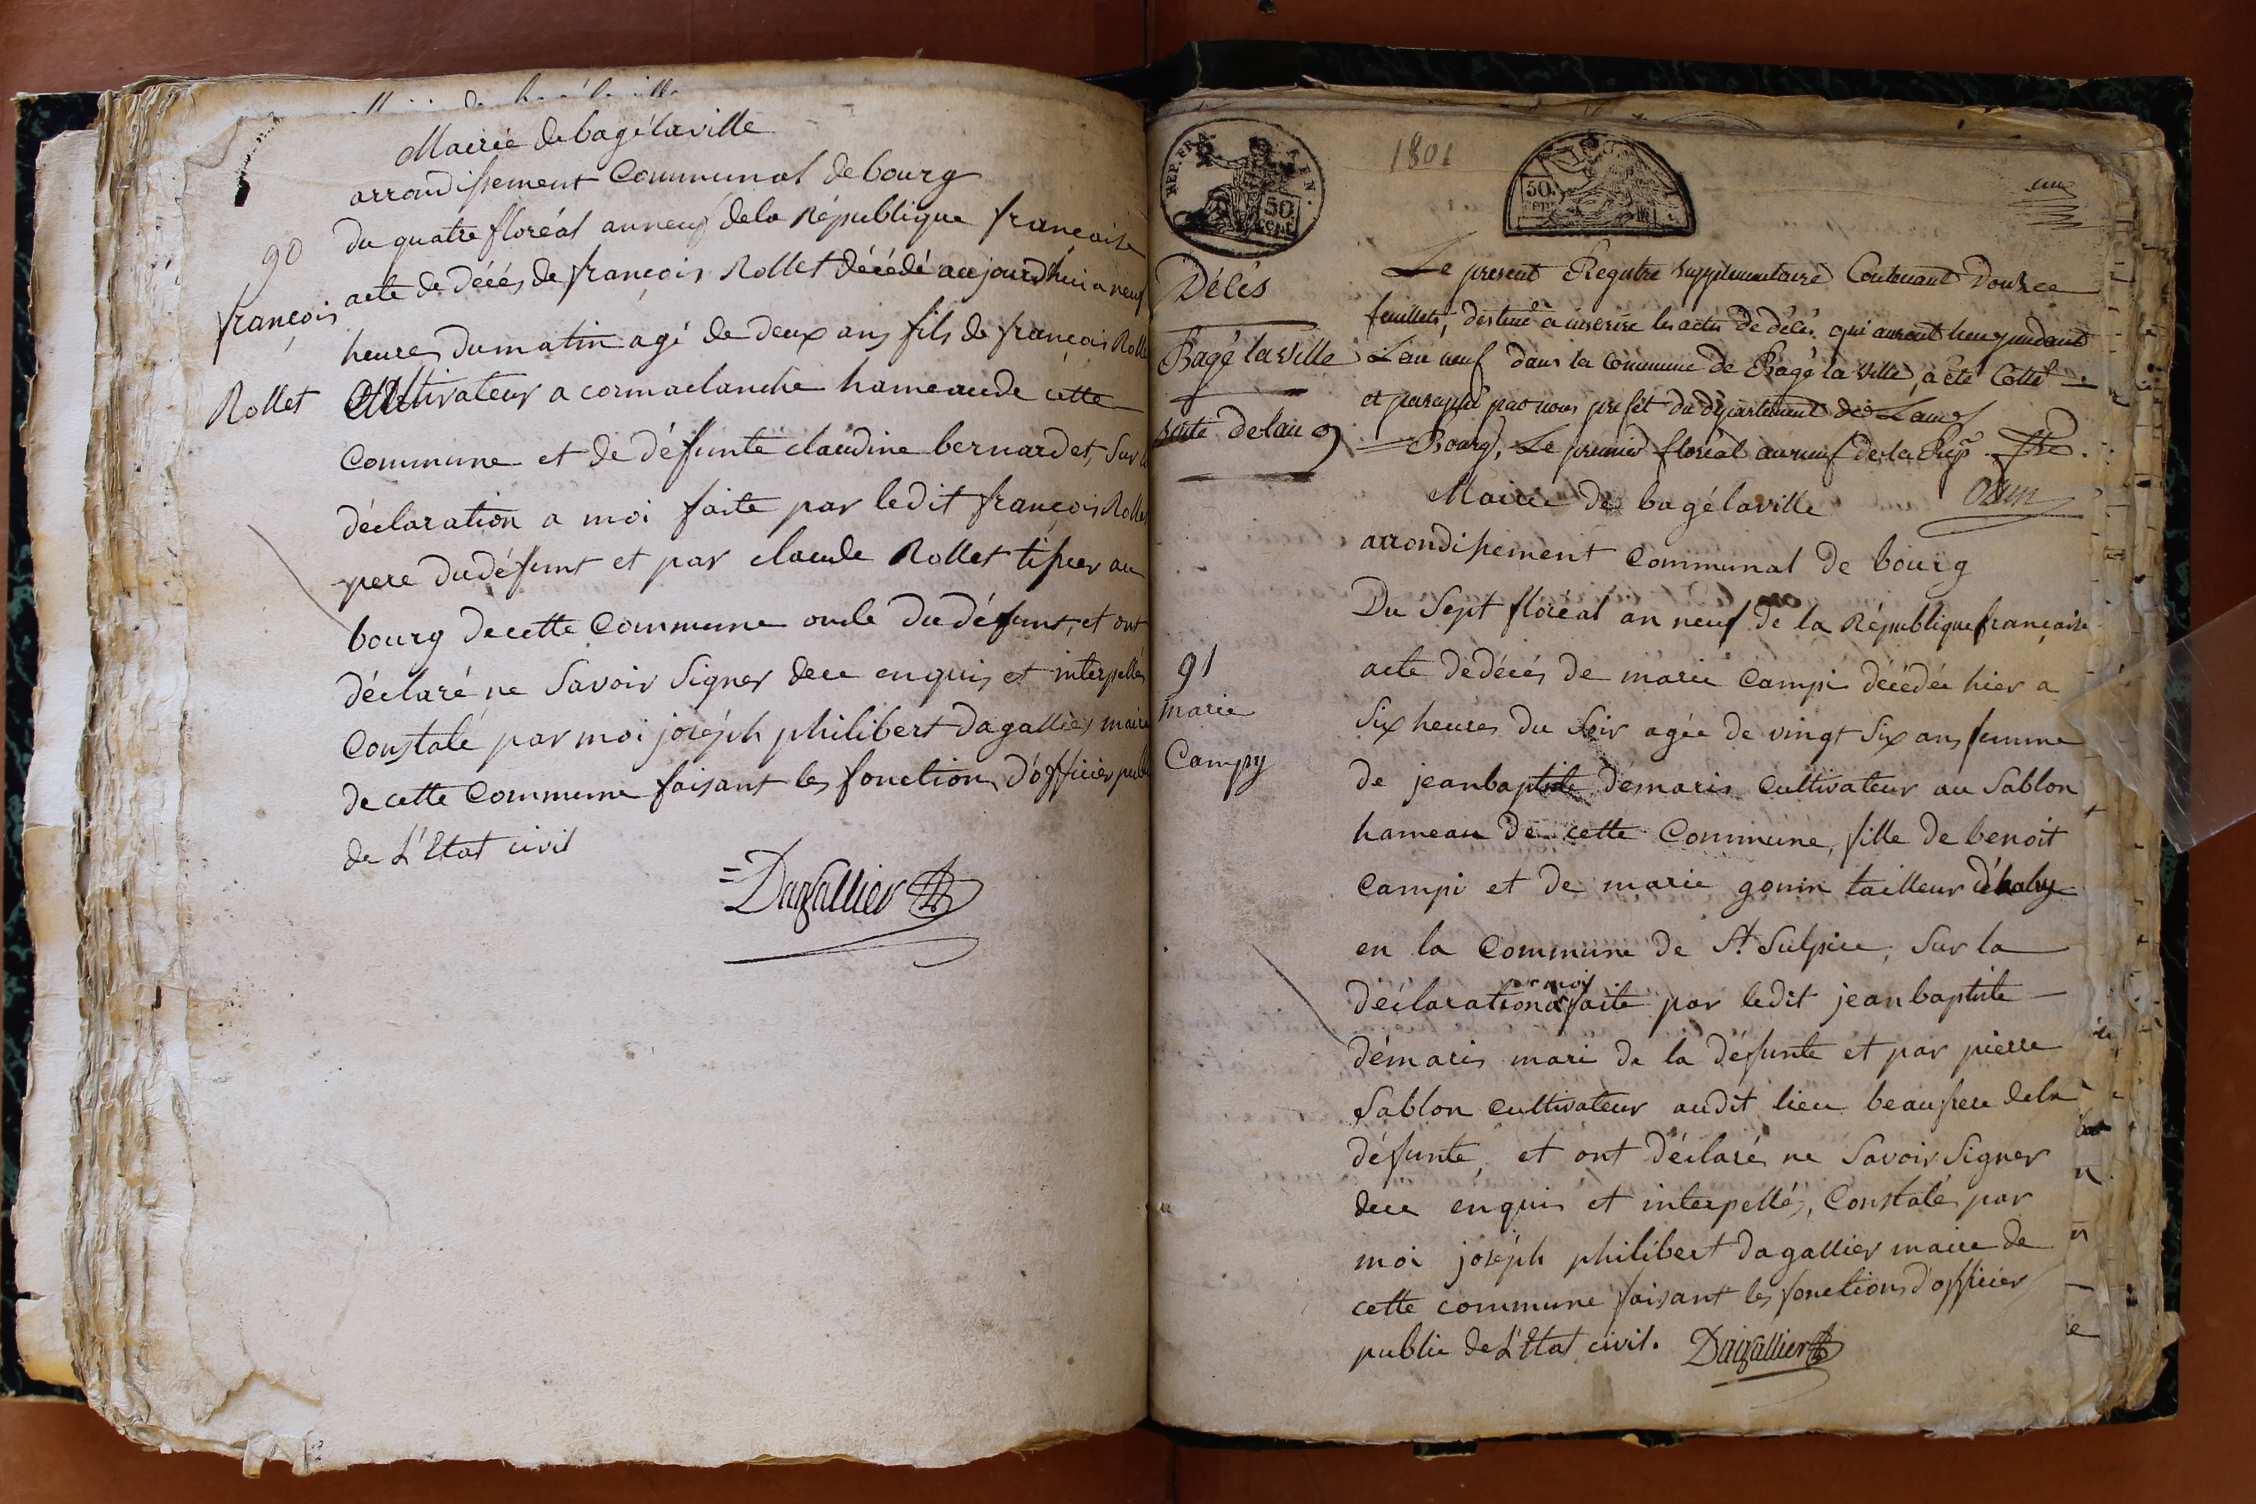 Mairie de bagélaville
arrondissement Communal de bourg
du quatre floréal an neuf de la République française
90
acte de décés de françois Rollet décédé aujourd'hui a neuf
françois
heures du matin agé de deux ans fils de françois Rolle
Rollet
Cultivateur a cormaclanche hameau de cette
Commune et de défunte claudine bernardet, Sur la
déclaration a moi faite par ledit françois Rollet
pere du défunt et par claude Rollet tissier au
bourg de cette Commune oncle du défunt, et ont
déclaré ne Savoir Signer de ce enquis et interpellés
Constaté par moi joséph philibert Dagallier maire
de cette Commune faisant les fonctions d'officier publi
de L'Etat civil
Dagallier
REP. FRA
50 cent
1801
50 cent
un
Décès
Bagé la ville
suite de l'an 9
Le présent Registre supplémentaire Contenant Douze
feuillets, destiné à inscrire les actes de décès qui auront lieu pendant
L'an neuf dans la Commune de Bagé la Ville, a été Cotté
et paraphé par nous préfet du département de L'ain
Bourg, Le premier floréal an neuf de la Rép.
Mairie de bagélaville
arrondissement Communal de bourg
Du Sept floréal an neuf de la République française
91
marie
Campy
acte de décés de marie Campi décédée hier a
Six heures du Soir agée de vingt Six ans femme
de jeanbaptiste démaris Cultivateur au Sablon
hameau de cette Commune, fille de benoit
Campi et de marie gonin tailleur d'
en la Commune de St Sulpice, Sur la
a moi
déclaration faite par ledit jeanbaptiste
démaris mari de la défunte et par pierre
Sablon Cultivateur audit lieu beaupere de la
défunte, et ont déclaré ne Savoir Signer
de ce enquis et interpellés, Constaté par
moi joséph philibert Dagallier maire de
cette commune faisant les fonctions d'officier
public de L'Etat civil. Dagallier